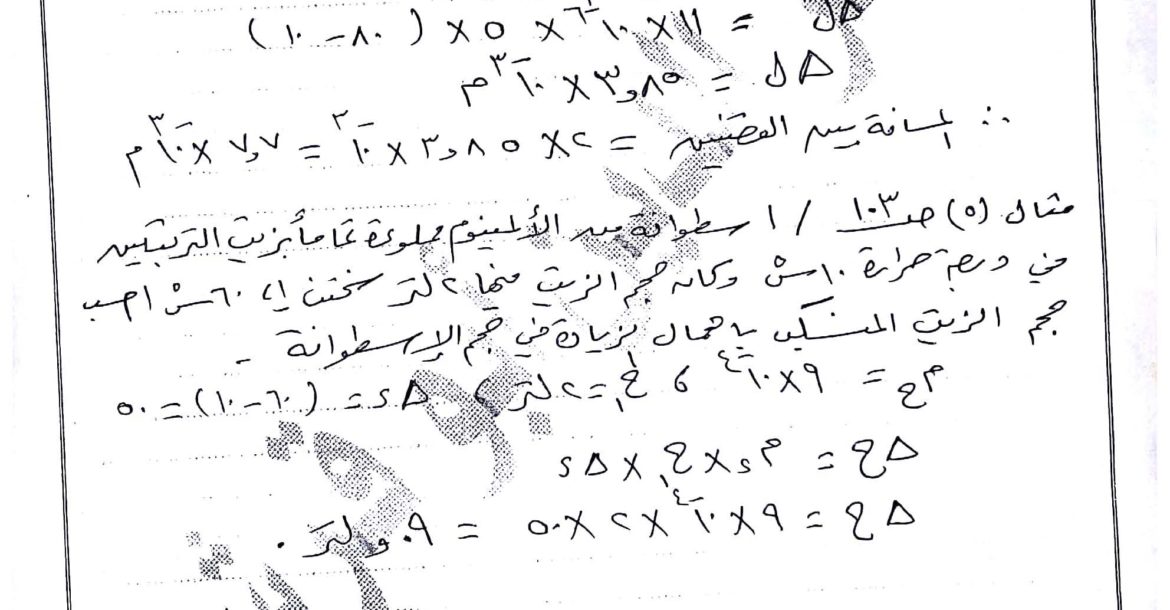 Δل = ١١ × ١٠⁻⁶ × ٥ × (٨٠ - ١٠)
Δل = ٣٫٨٥ × ١٠⁻³ م
∴ المسافة بين القضبين = ٢ × ٣٫٨٥ × ١٠⁻² = ٧٫٧ × ١٠⁻³ م
مثال (٥) صـ ١٠٣ / اسطوانة من الألمنيوم مملوءة تماماً بزيت التربنتين
في درجة حرارة ١٠ سْ وكان حجم الزيت فيها ٢ لتر سخنت إلى ٦٠ سْ احسب
حجم الزيت المنسكب بإهمال الزيادة في حجم الإسطوانة -
م ح = ٩ × ١٠⁻⁴ ، ح١ = ٢ لتر ، Δد = (٦٠ - ١٠) = ٥٠
Δح = م د × ح١ × Δد
Δح = ٩ × ١٠⁻⁴ × ٢ × ٥٠ = ٠٫٠٩ لتر .